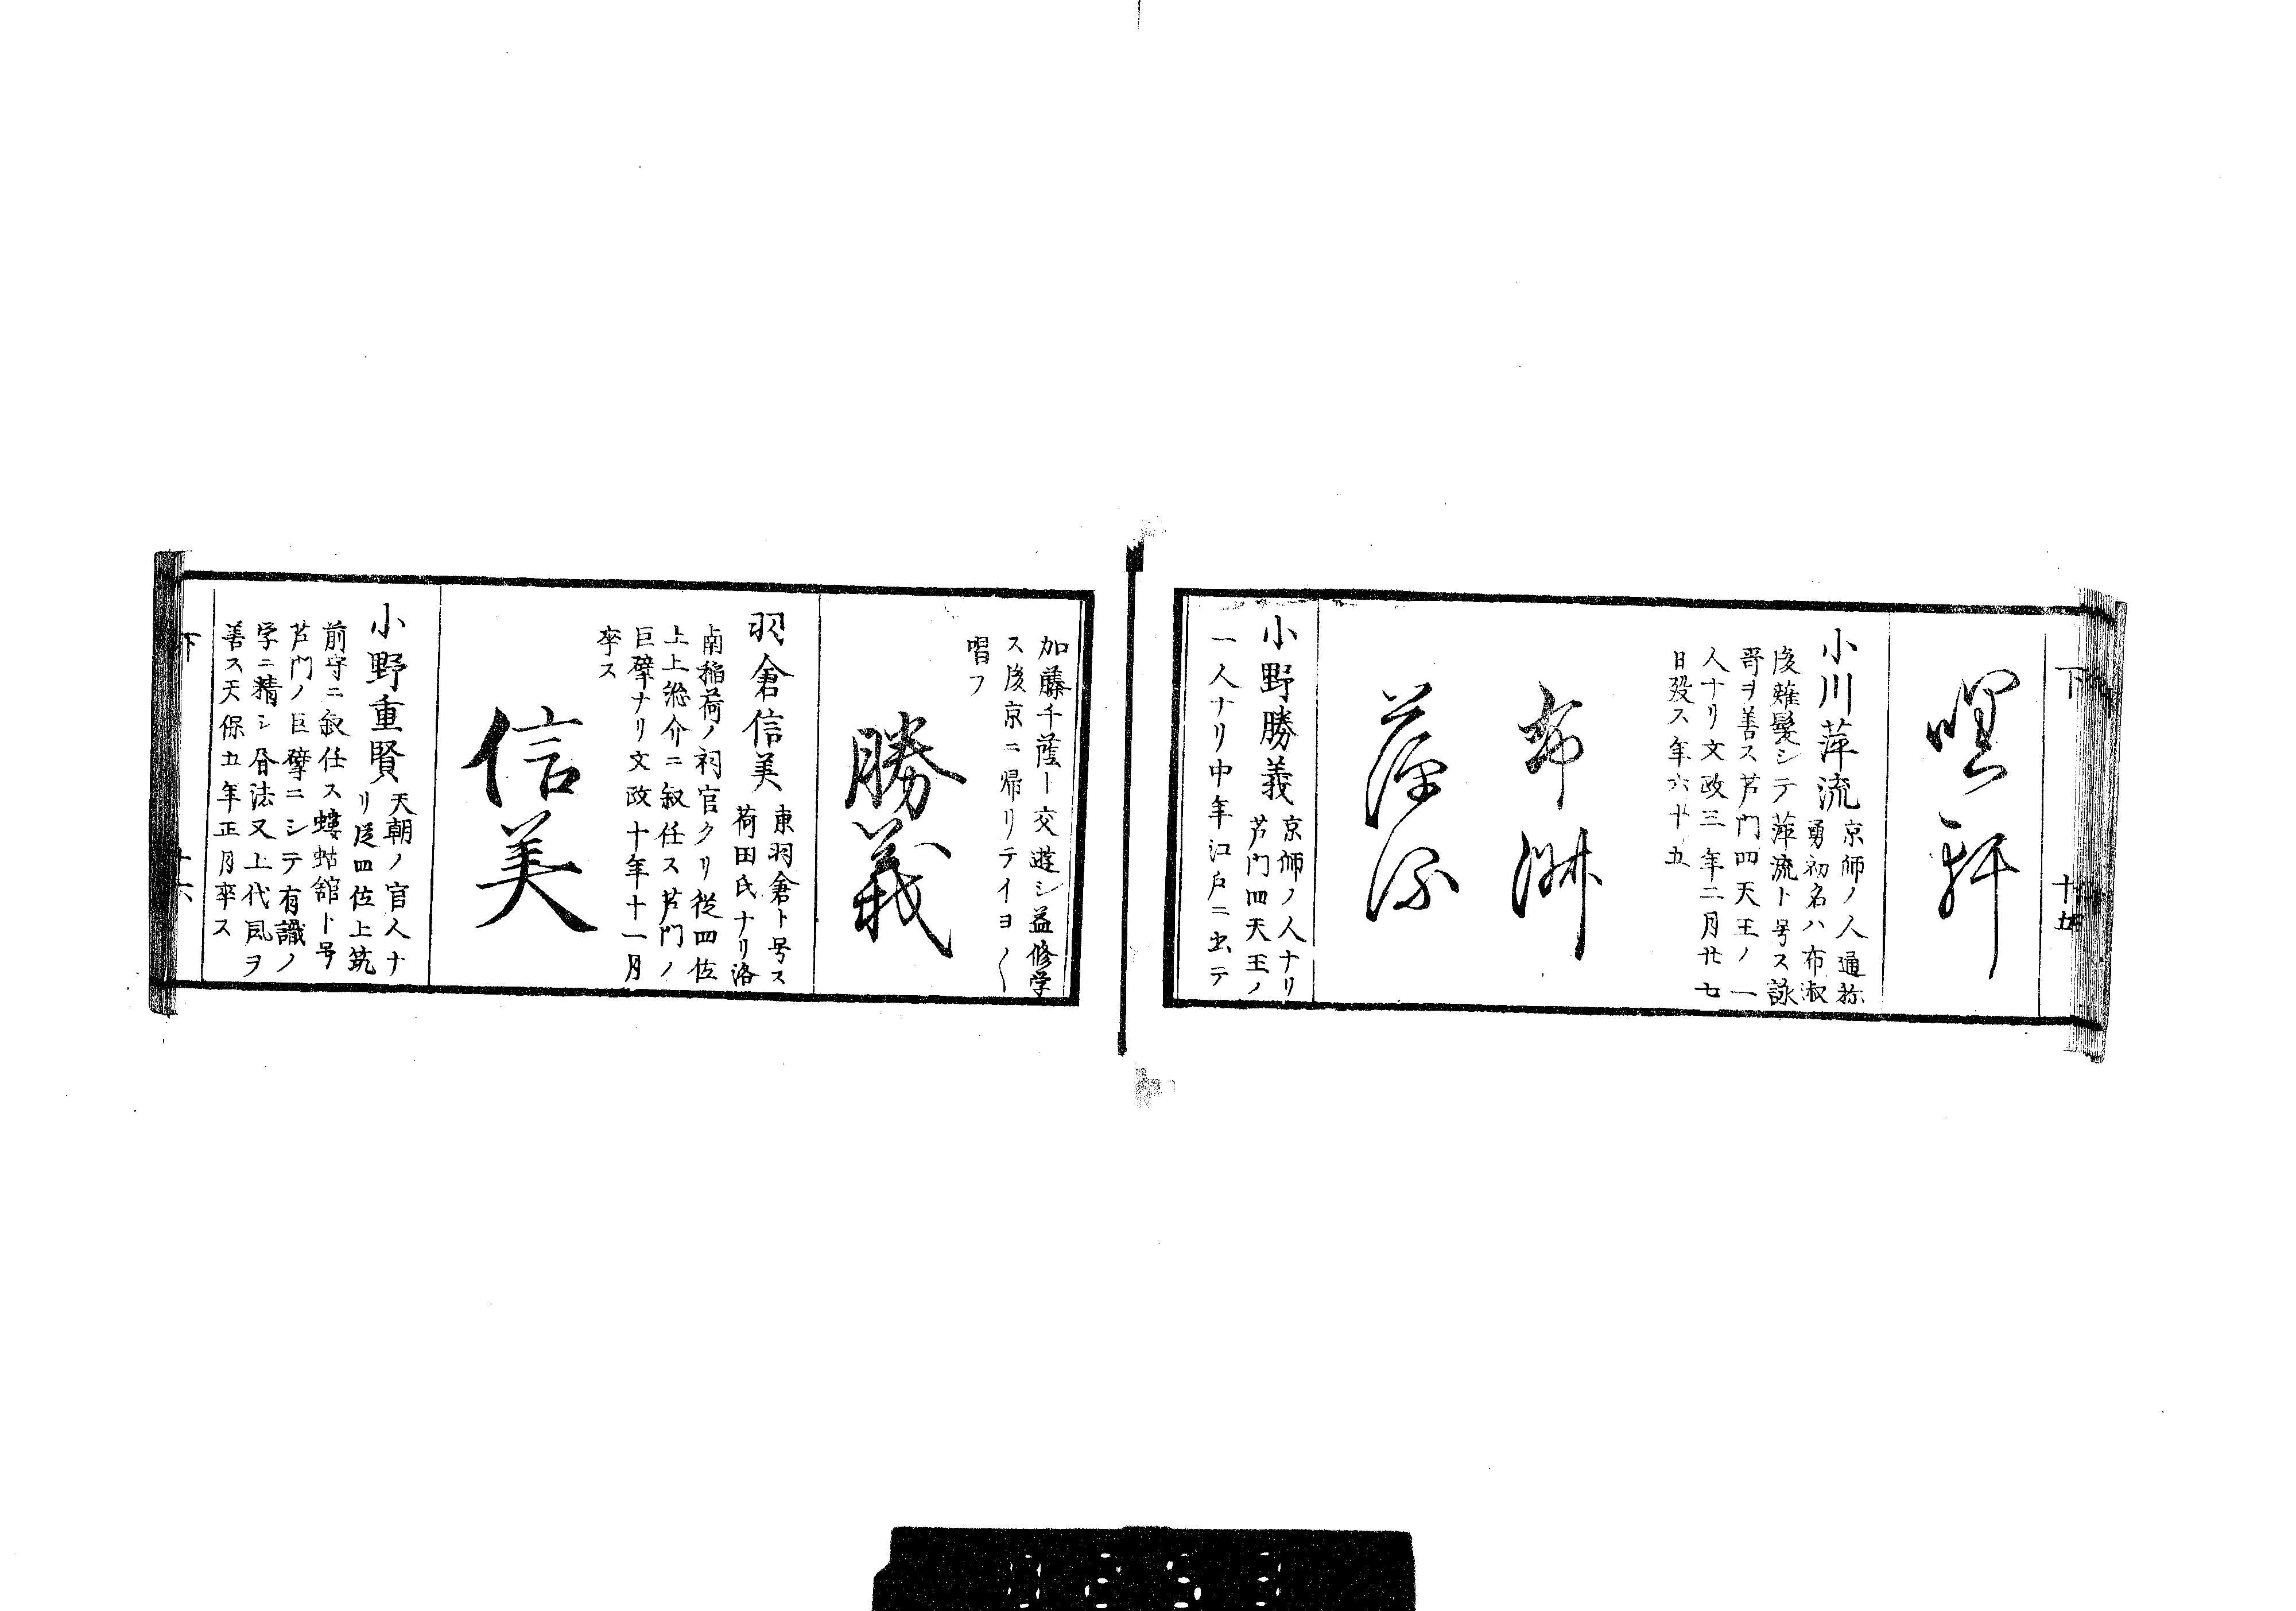 下
十五
軒
小川萍流
京師ノ人通称
勇初名ハ布淑
後薙髪シテ萍流ト号ス詠
哥ヲ善ス芦門四天王ノ一
人ナリ文政三年二月廿七
日歿ス年六十五
布淑
萍流
小野勝義
京師ノ人ナリ
芦門四天王ノ
一人ナリ中年江戸ニ出テ
加藤千蔭ト交遊シ益修学
ス後京ニ帰リテイヨ〱
唱フ
勝義
羽倉信美
東羽倉ト号ス
荷田氏ナリ洛
南稲荷ノ祠官タリ従四位
上上総介ニ叙任ス芦門ノ
巨擘ナリ文政十年十一月
卒ス
信美
小野重賢
天朝ノ官人ナ
リ従四位上筑
前守ニ叙任ス螻蛄舘ト号
芦門ノ巨擘ニシテ有識ノ
学ニ精シ
法又上代風ヲ
善ス天保五年正月卒ス
下
十六